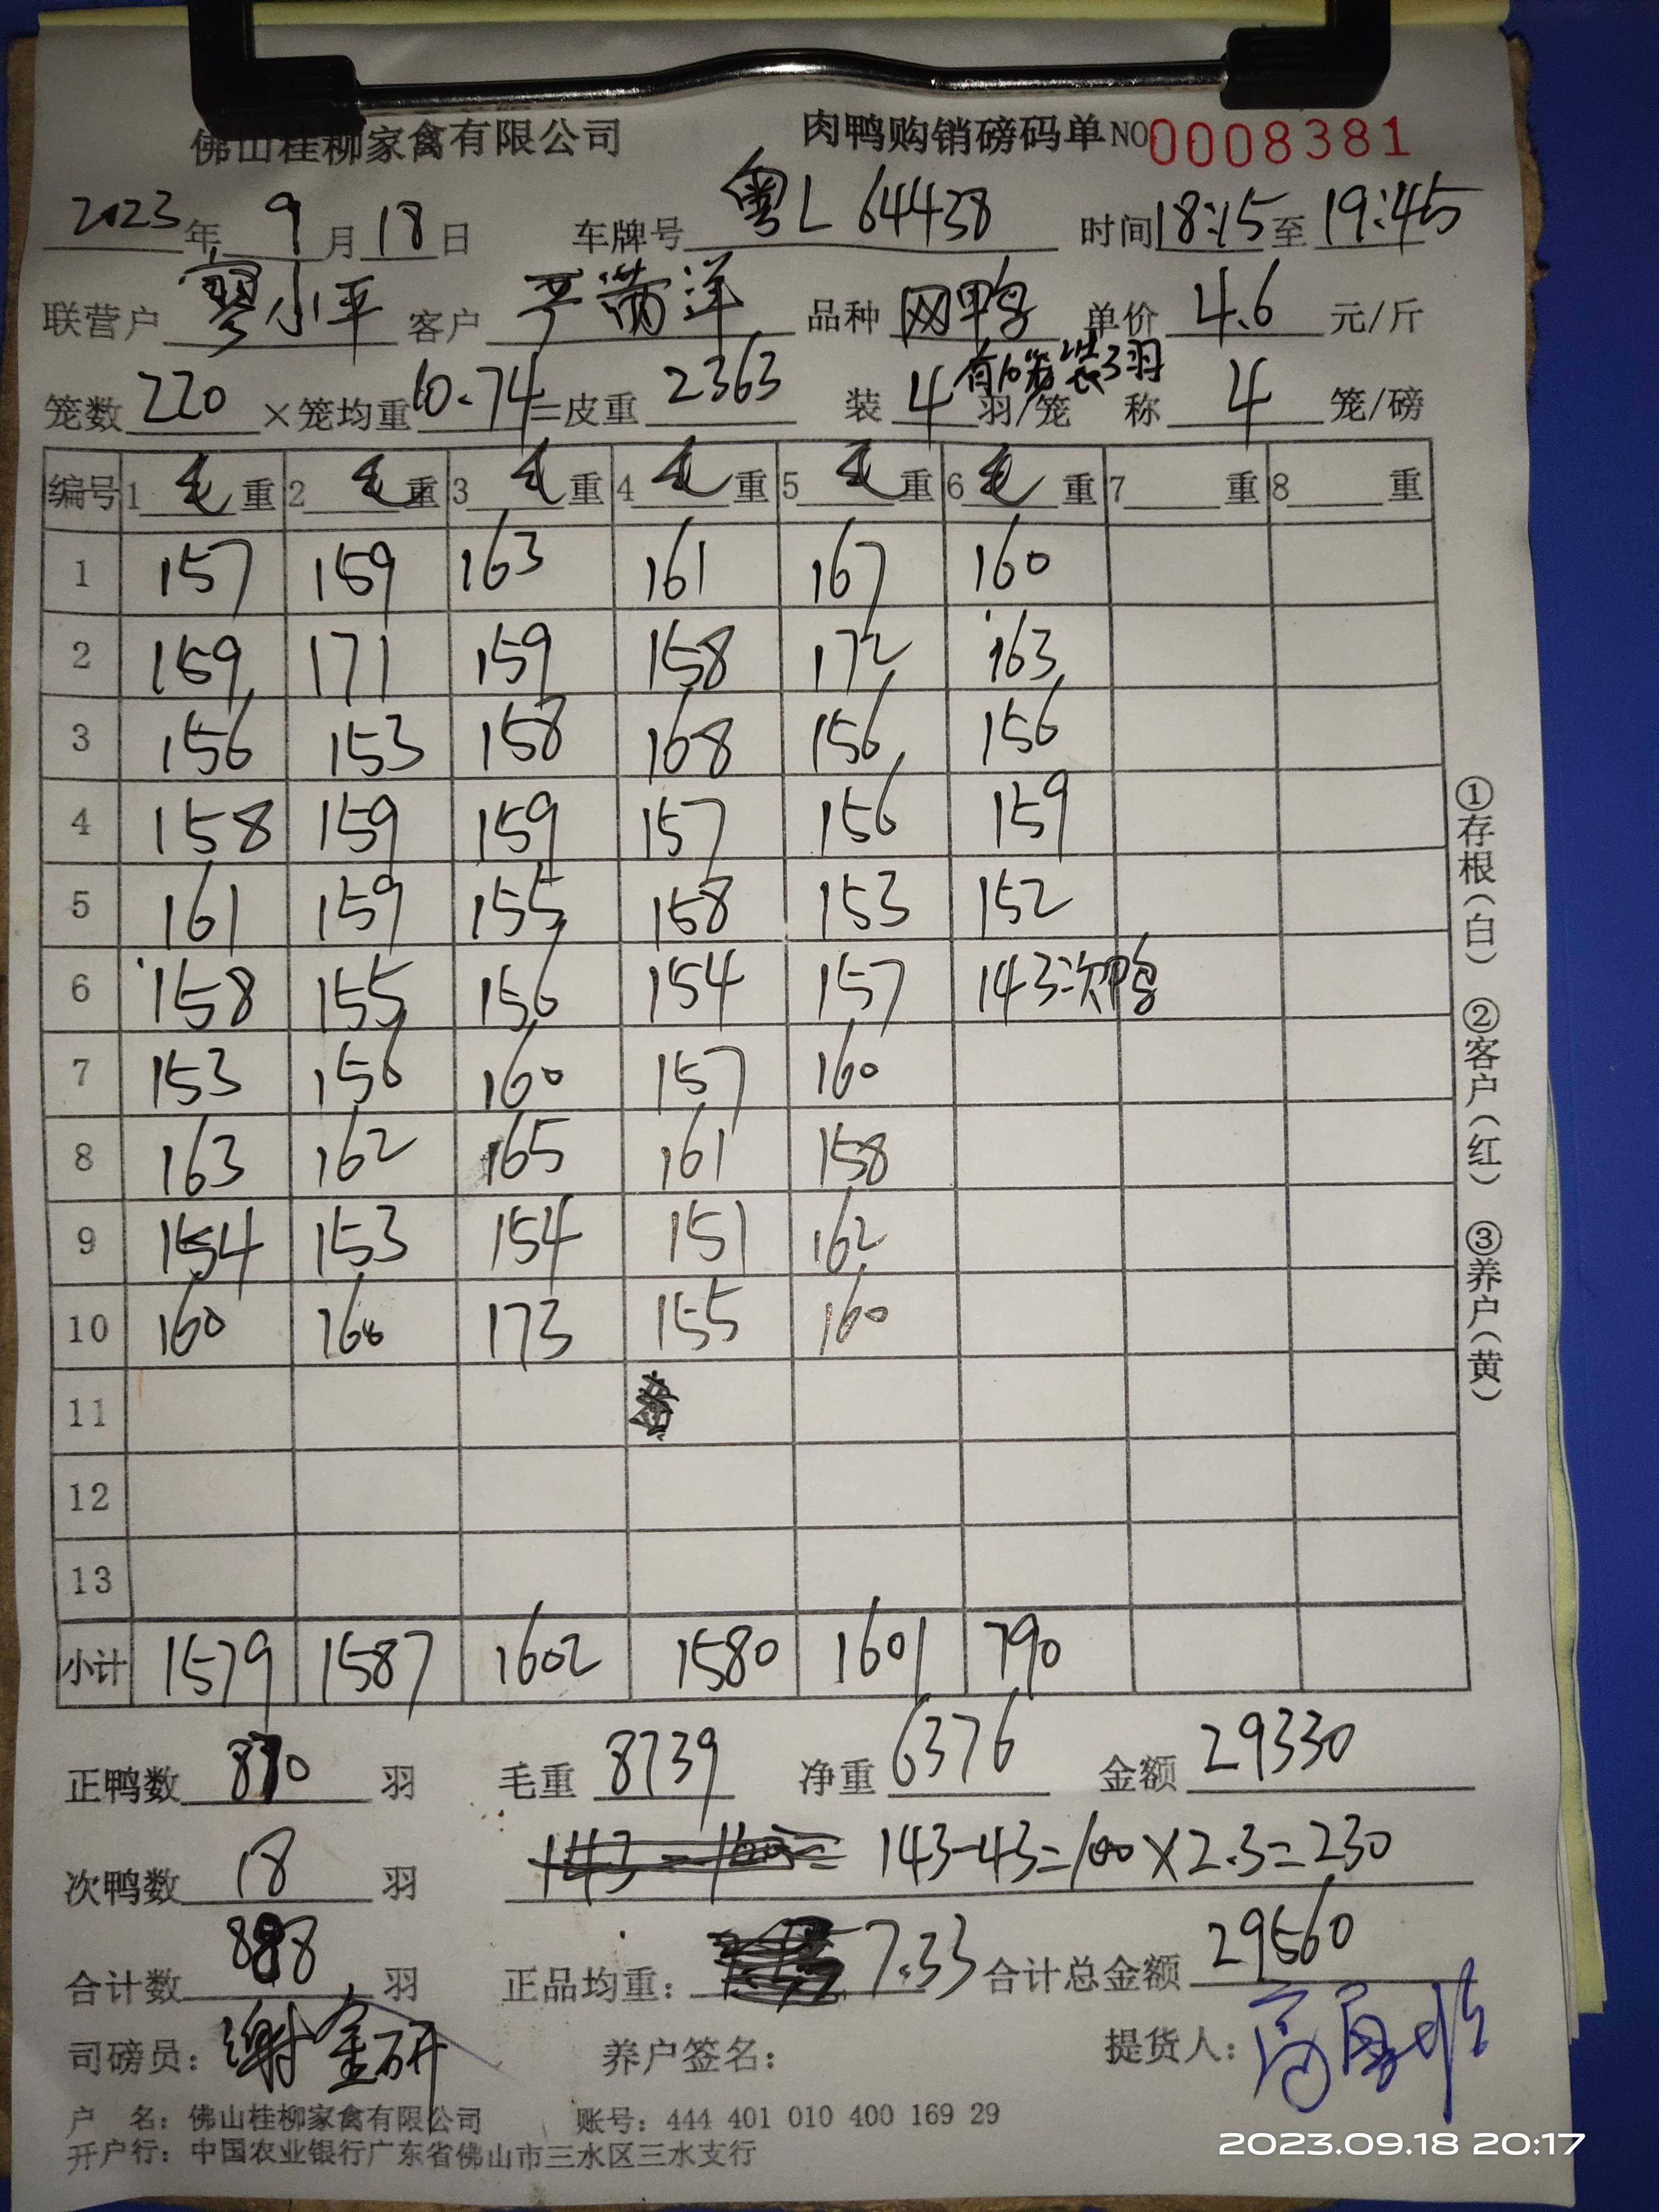 佛山桂柳家禽有限公司 肉鸭购销磅码单 NO 0008381
2023年 9月18日 车牌号 粤L 64438 时间 18:15 至 19:45
联营户 廖小平 客户 严带洋 品种 网鸭 单价 4.6 元/斤
有10笼装3羽
笼数 220 ×笼均重 10.74 =皮重 2363 装 4 羽/笼 称 4 笼/磅
编号 1 毛重 2 毛重 3 毛重 4 毛重 5 毛重 6 毛重 7 重 8 重
1 157 159 163 161 167 160
2 159 171 159 158 172 163
3 156 153 158 168 156 156
4 158 159 159 157 156 159
5 161 159 155 158 153 152
6 158 155 156 154 157 143次鸭
7 153 156 160 157 160
8 163 162 165 161 158
9 154 153 154 151 162
10 160 160 173 155 160
11
12
13
小计 1579 1587 1602 1580 1601 790
正鸭数 870 羽 毛重 8739 净重 6376 金额 29330
次鸭数 18 羽 143-43=100×2.3=230
合计数 888 羽 正品均重: 7.33 合计总金额 29560
司磅员: 谢金研 养户签名: 提货人:
户 名: 佛山桂柳家禽有限公司 账号: 444 401 010 400 169 29
开户行: 中国农业银行广东省佛山市三水区三水支行
①存根(白) ②客户(红) ③养户(黄)
2023.09.18 20:17